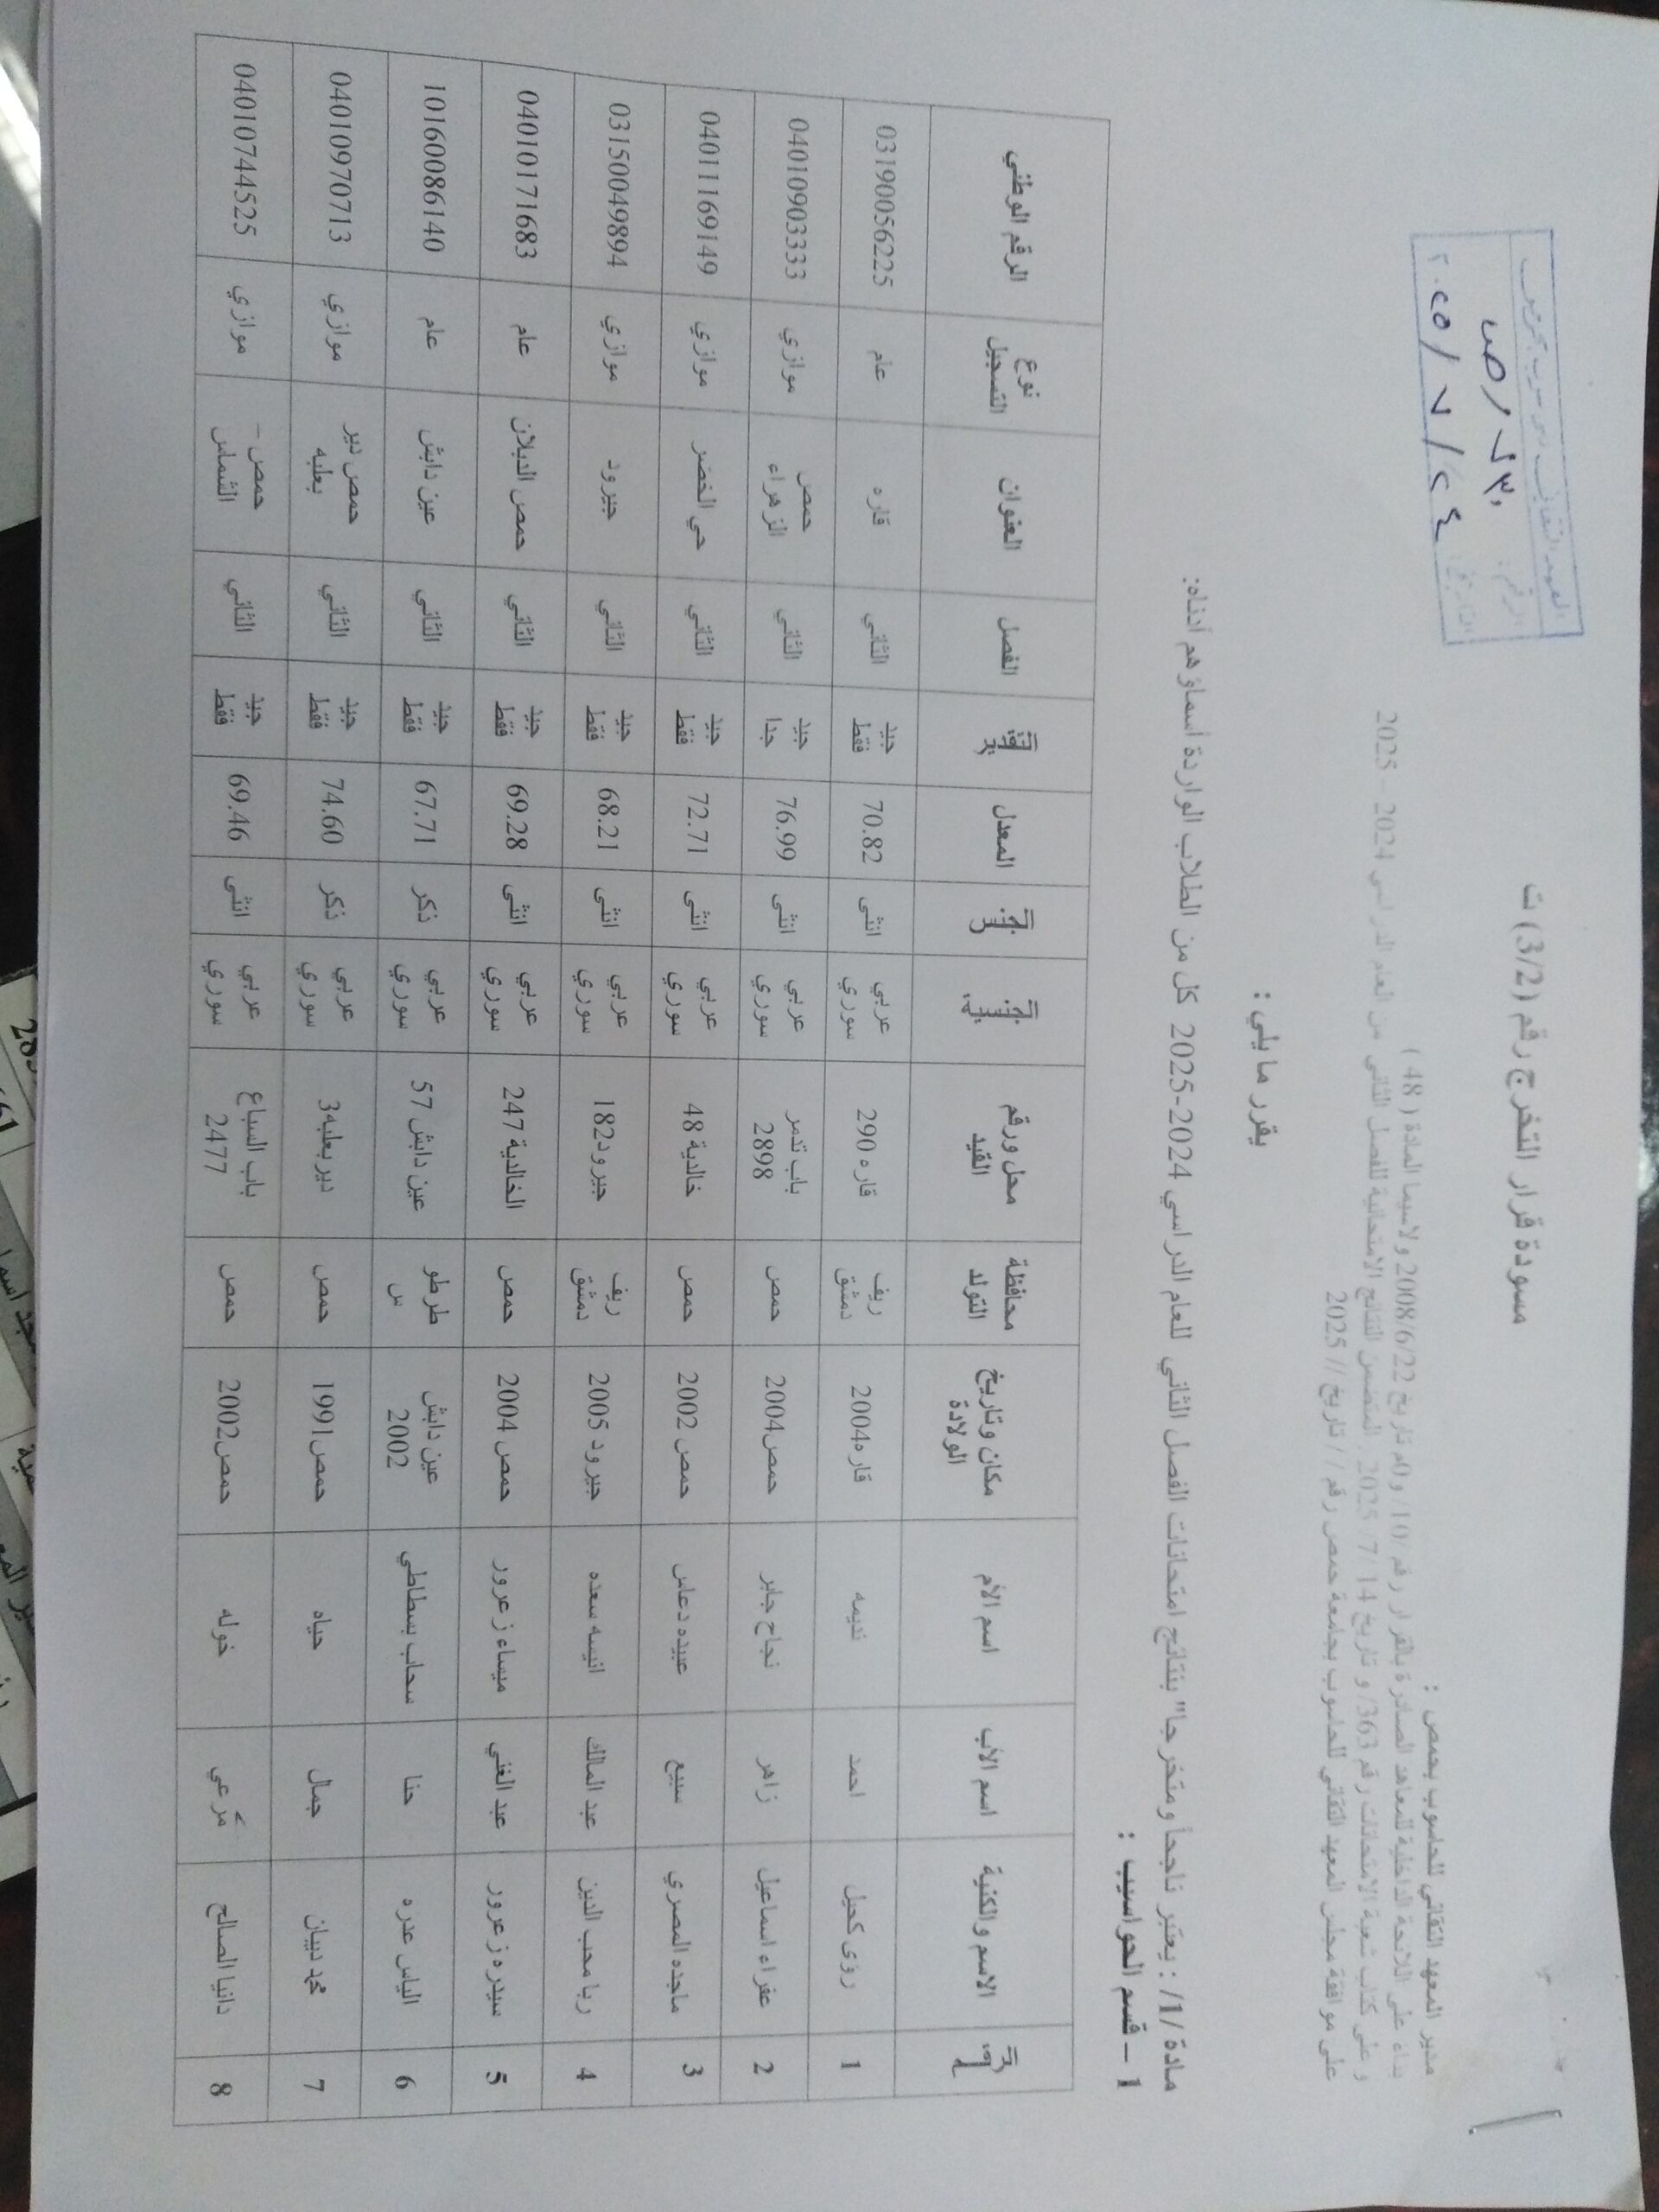 مسودة قرار التخرج رقم (3/2) ت
٧٣٠ / ص
٢٠٢٥ / ٧ / ٢٤
مدير المعهد التقاني للحاسوب بحمص :
بناء على اللائحة الداخلية للمعاهد الصادرة بالقرار رقم /10/ و0م تاريخ 2008/6/22 ولاسيما المادة ( 48 )
وعلى كتاب شعبة الامتحانات رقم 363/ و تاريخ 7/14/ 2025 المتضمن النتائج الامتحانية للفصل الثاني من العام الدراسي 2024 – 2025
على موافقة مجلس المعهد التقاني للحاسوب بجامعة حمص رقم / / تاريخ // 2025
يقرر مايلي :
مادة /1/ : يعتبر ناجحاً ومتخرجا" بنتائج امتحانات الفصل الثاني للعام الدراسي 2024-2025 كل من الطلاب الواردة أسماؤهم أدناه:
1 – قسم الحواسيب :
الرقم الاسم والكنية اسم الأب اسم الأم مكان وتاريخ الولادة محافظة التولد محل ورقم القيد الجنسية الجنس المعدل التقدير الفصل العنوان نوع التسجيل الرقم الوطني
1 رؤى كحيل احمد نديمه قاره2004 ريف دمشق قاره 290 عربي سوري انثى 70.82 جيد فقط الثاني قاره عام 03190056225
2 عفراء اسماعيل زاهر نجاح جابر حمص2004 حمص باب تدمر 2898 عربي سوري انثى 76.99 جيد جدا الثاني حمص الزهراء موازي 04010903333
3 ماجده المصري سبيع عبيده دعاس حمص 2002 حمص خالدية 48 عربي سوري انثى 72.71 جيد فقط الثاني حي الخضر موازي 04011169149
4 ربا محب الدين عبد المالك انيسه سعده جيرود 2005 ريف دمشق جيرود182 عربي سوري انثى 68.21 جيد فقط الثاني جيرود موازي 03150049894
5 سيدره زعرور عبد الغني ميساء زعرور حمص 2004 حمص الخالدية 247 عربي سوري انثى 69.28 جيد فقط الثاني حمص الدبلان عام 04010171683
6 الياس عدره حنا سحاب بسطاطي عين دابش 2002 طرطوس عين دابش 57 عربي سوري ذكر 67.71 جيد فقط الثاني عين دابش عام 10160086140
7 محمد ديبان جمال حياه حمص1991 حمص ديربعلبه34 عربي سوري ذكر 74.60 جيد فقط الثاني حمص دير بعلبه موازي 04010970713
8 دانيا الصالح مرعي خوله حمص2002 حمص باب السباع 2477 عربي سوري انثى 69.46 جيد فقط الثاني حمص – الشماس موازي 04010744525